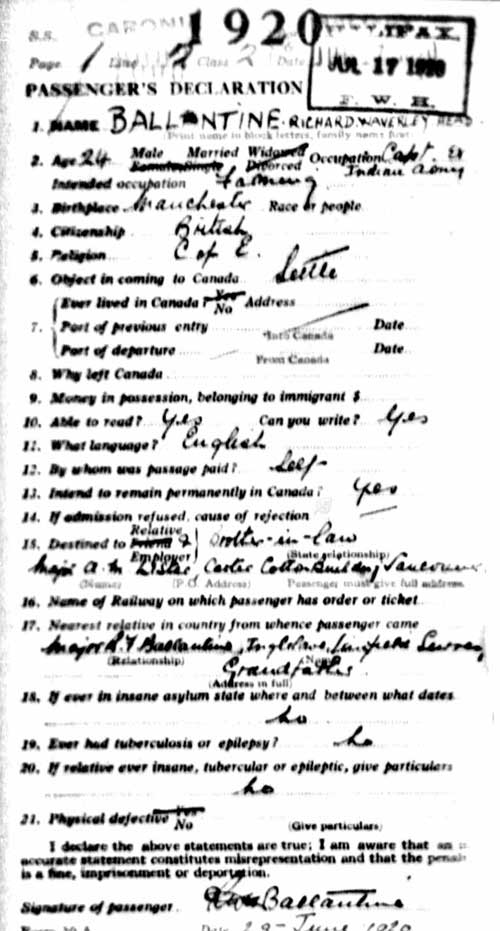 1920
S.S. CARONI
HALIFAX
JUL 17 1920
Page 1 Line 12 Class 2 Date
PASSENGER'S DECLARATION
1. NAME BALLANTINE. RICHARD. WAVERLEY HEAD
(Print name in block letters, family name first)
2. Age 24 Male Married Widowed Occupation Capt. Ex
Female Single Divorced Indian Army
Intended occupation Farming
3. Birthplace Manchester Race or people
4. Citizenship British
5. Religion C of E.
6. Object in coming to Canada Settle
7. Ever lived in Canada? Yes No Address
Port of previous entry Date
Into Canada
Port of departure Date
From Canada
8. Why left Canada
9. Money in possession, belonging to immigrant $
10. Able to read? Yes Can you write? Yes
11. What language? English
12. By whom was passage paid? Self
13. Intend to remain permanently in Canada? Yes
14. If admission refused, cause of rejection
15. Destined to Relative Friend Employer Brother-in-law
(State relationship)
Major A. Cotton Building Vancouver
(Name) (P.O. Address) Passenger must give full address
16. Name of Railway on which passenger has order or ticket
17. Nearest relative in country from whence passenger came
Major Ballantine, Surrey
(Relationship) (Name)
Grandfather
(Address in full)
18. If ever in insane asylum state where and between what dates
no
19. Ever had tuberculosis or epilepsy? no
20. If relative ever insane, tubercular or epileptic, give particulars
no
21. Physical defective Yes No
(Give particulars)
I declare the above statements are true; I am aware that an
accurate statement constitutes misrepresentation and that the penal
is a fine, imprisonment or deportation.
Signature of passenger Ballantine
Date 29 June 1920